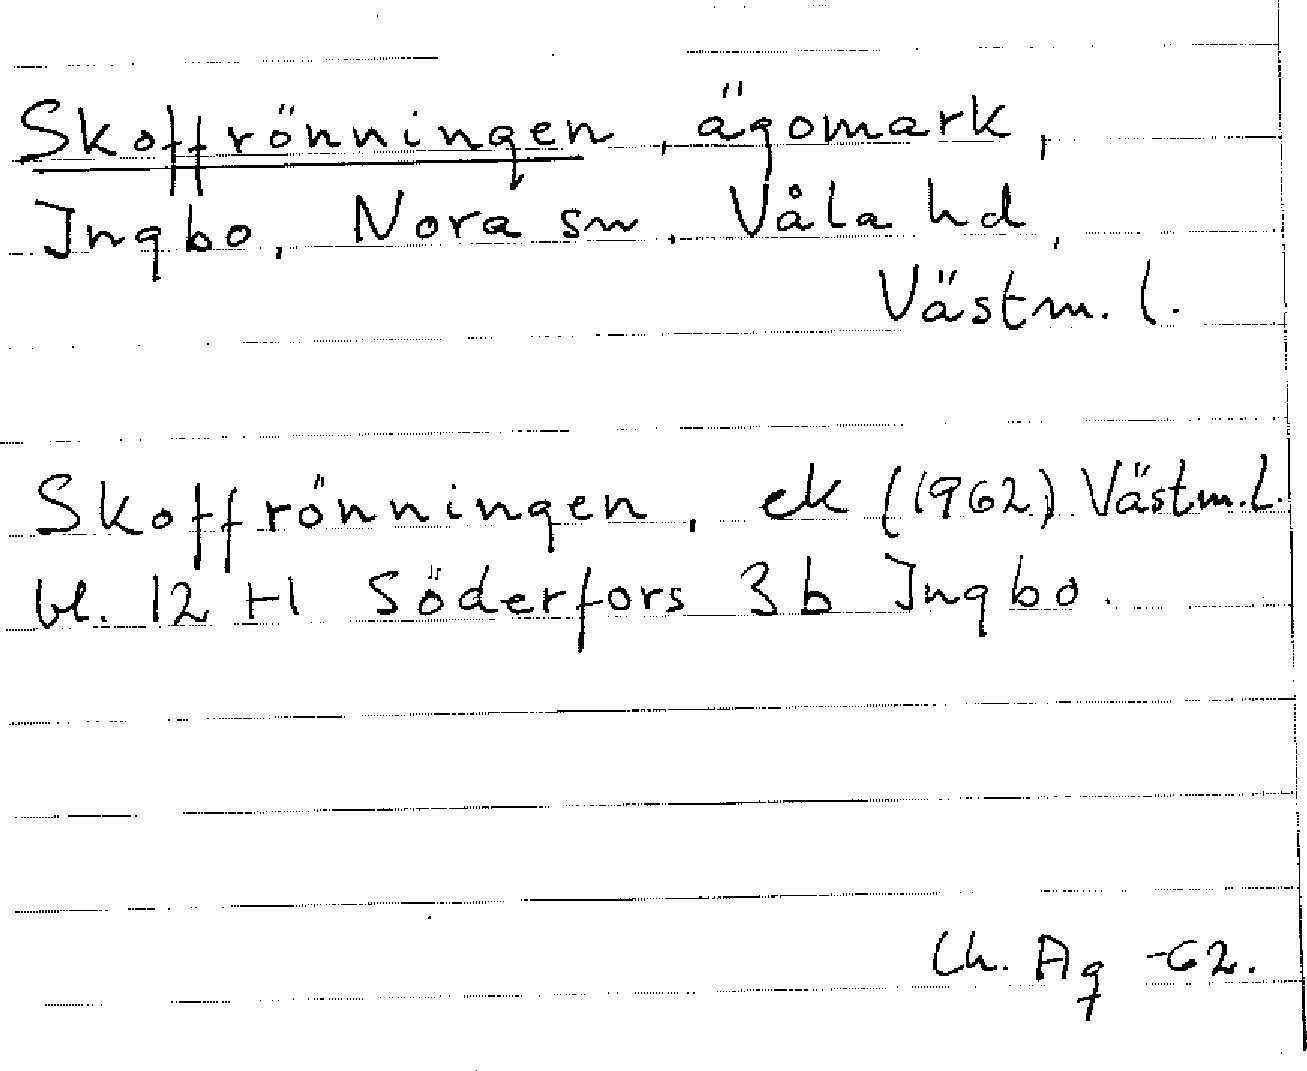 Skoffrönningen, ägomark,
Ingbo, Nora sn, Våla hd,
Västm. l.
Skoffrönningen, ek (1962) Västm.l.
bl. 12 H Söderfors 3 b Ingbo.
Ch. Ag -62.